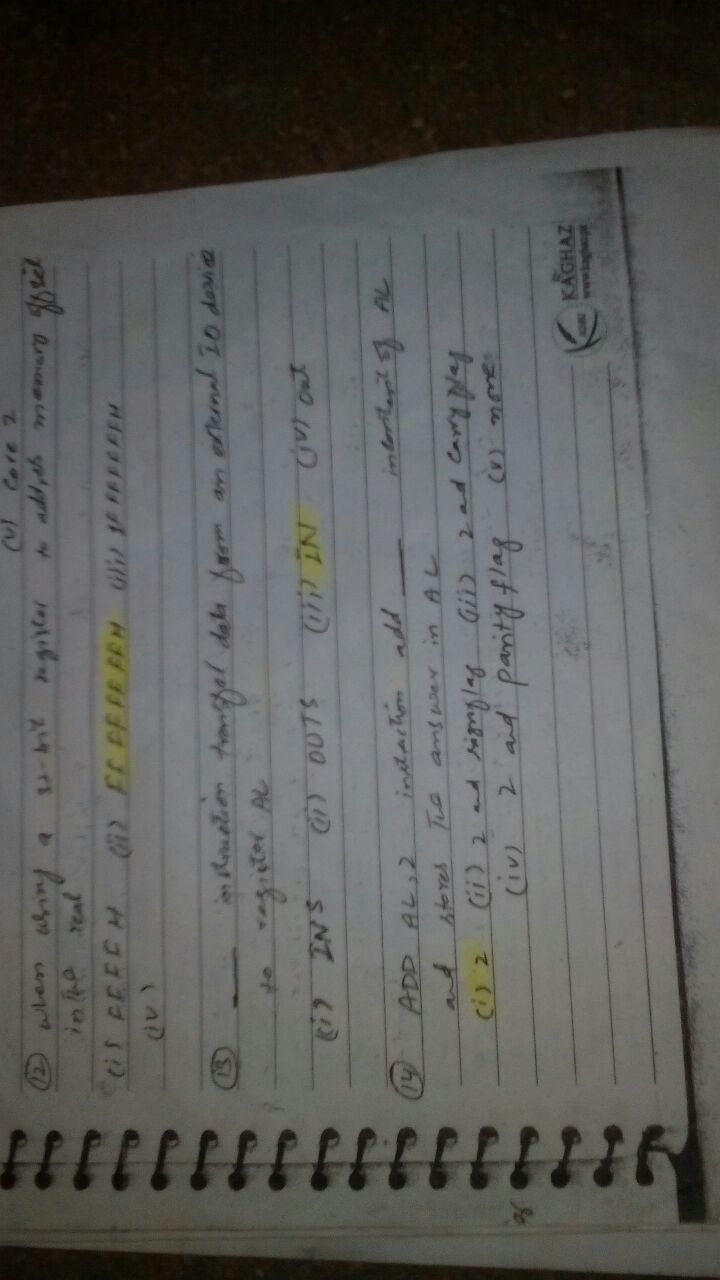 (v) Core 2
(12) when using a 32-bit register to address memory offset
in the real
(i) FFFFH (ii) FFFFFFFFH (iii)
(iv)
(13) ___ instruction transfer data from an external IO device
to register AL
(i) INS (ii) OUTS (iii) IN (iv) out
(14) ADD AL,2 instruction add ___ of AL
and stores the answer in AL
(i) 2 (ii) 2 and signflag (iii) 2 ad carry flag
(iv) 2 and parity flag (v) none
KAGHAZ